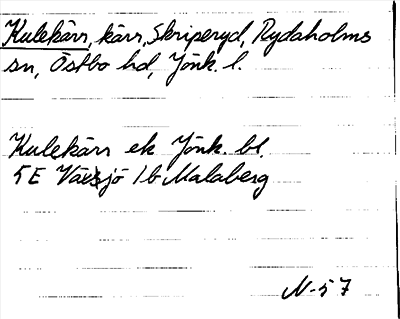 Kulekärr, kärr, Skriperyd, Rydaholms
sn, Östbo hd, Jönk. l.
Kulekärr ek Jönk. bl.
5E Växsjö 1b Malaberg
N-57